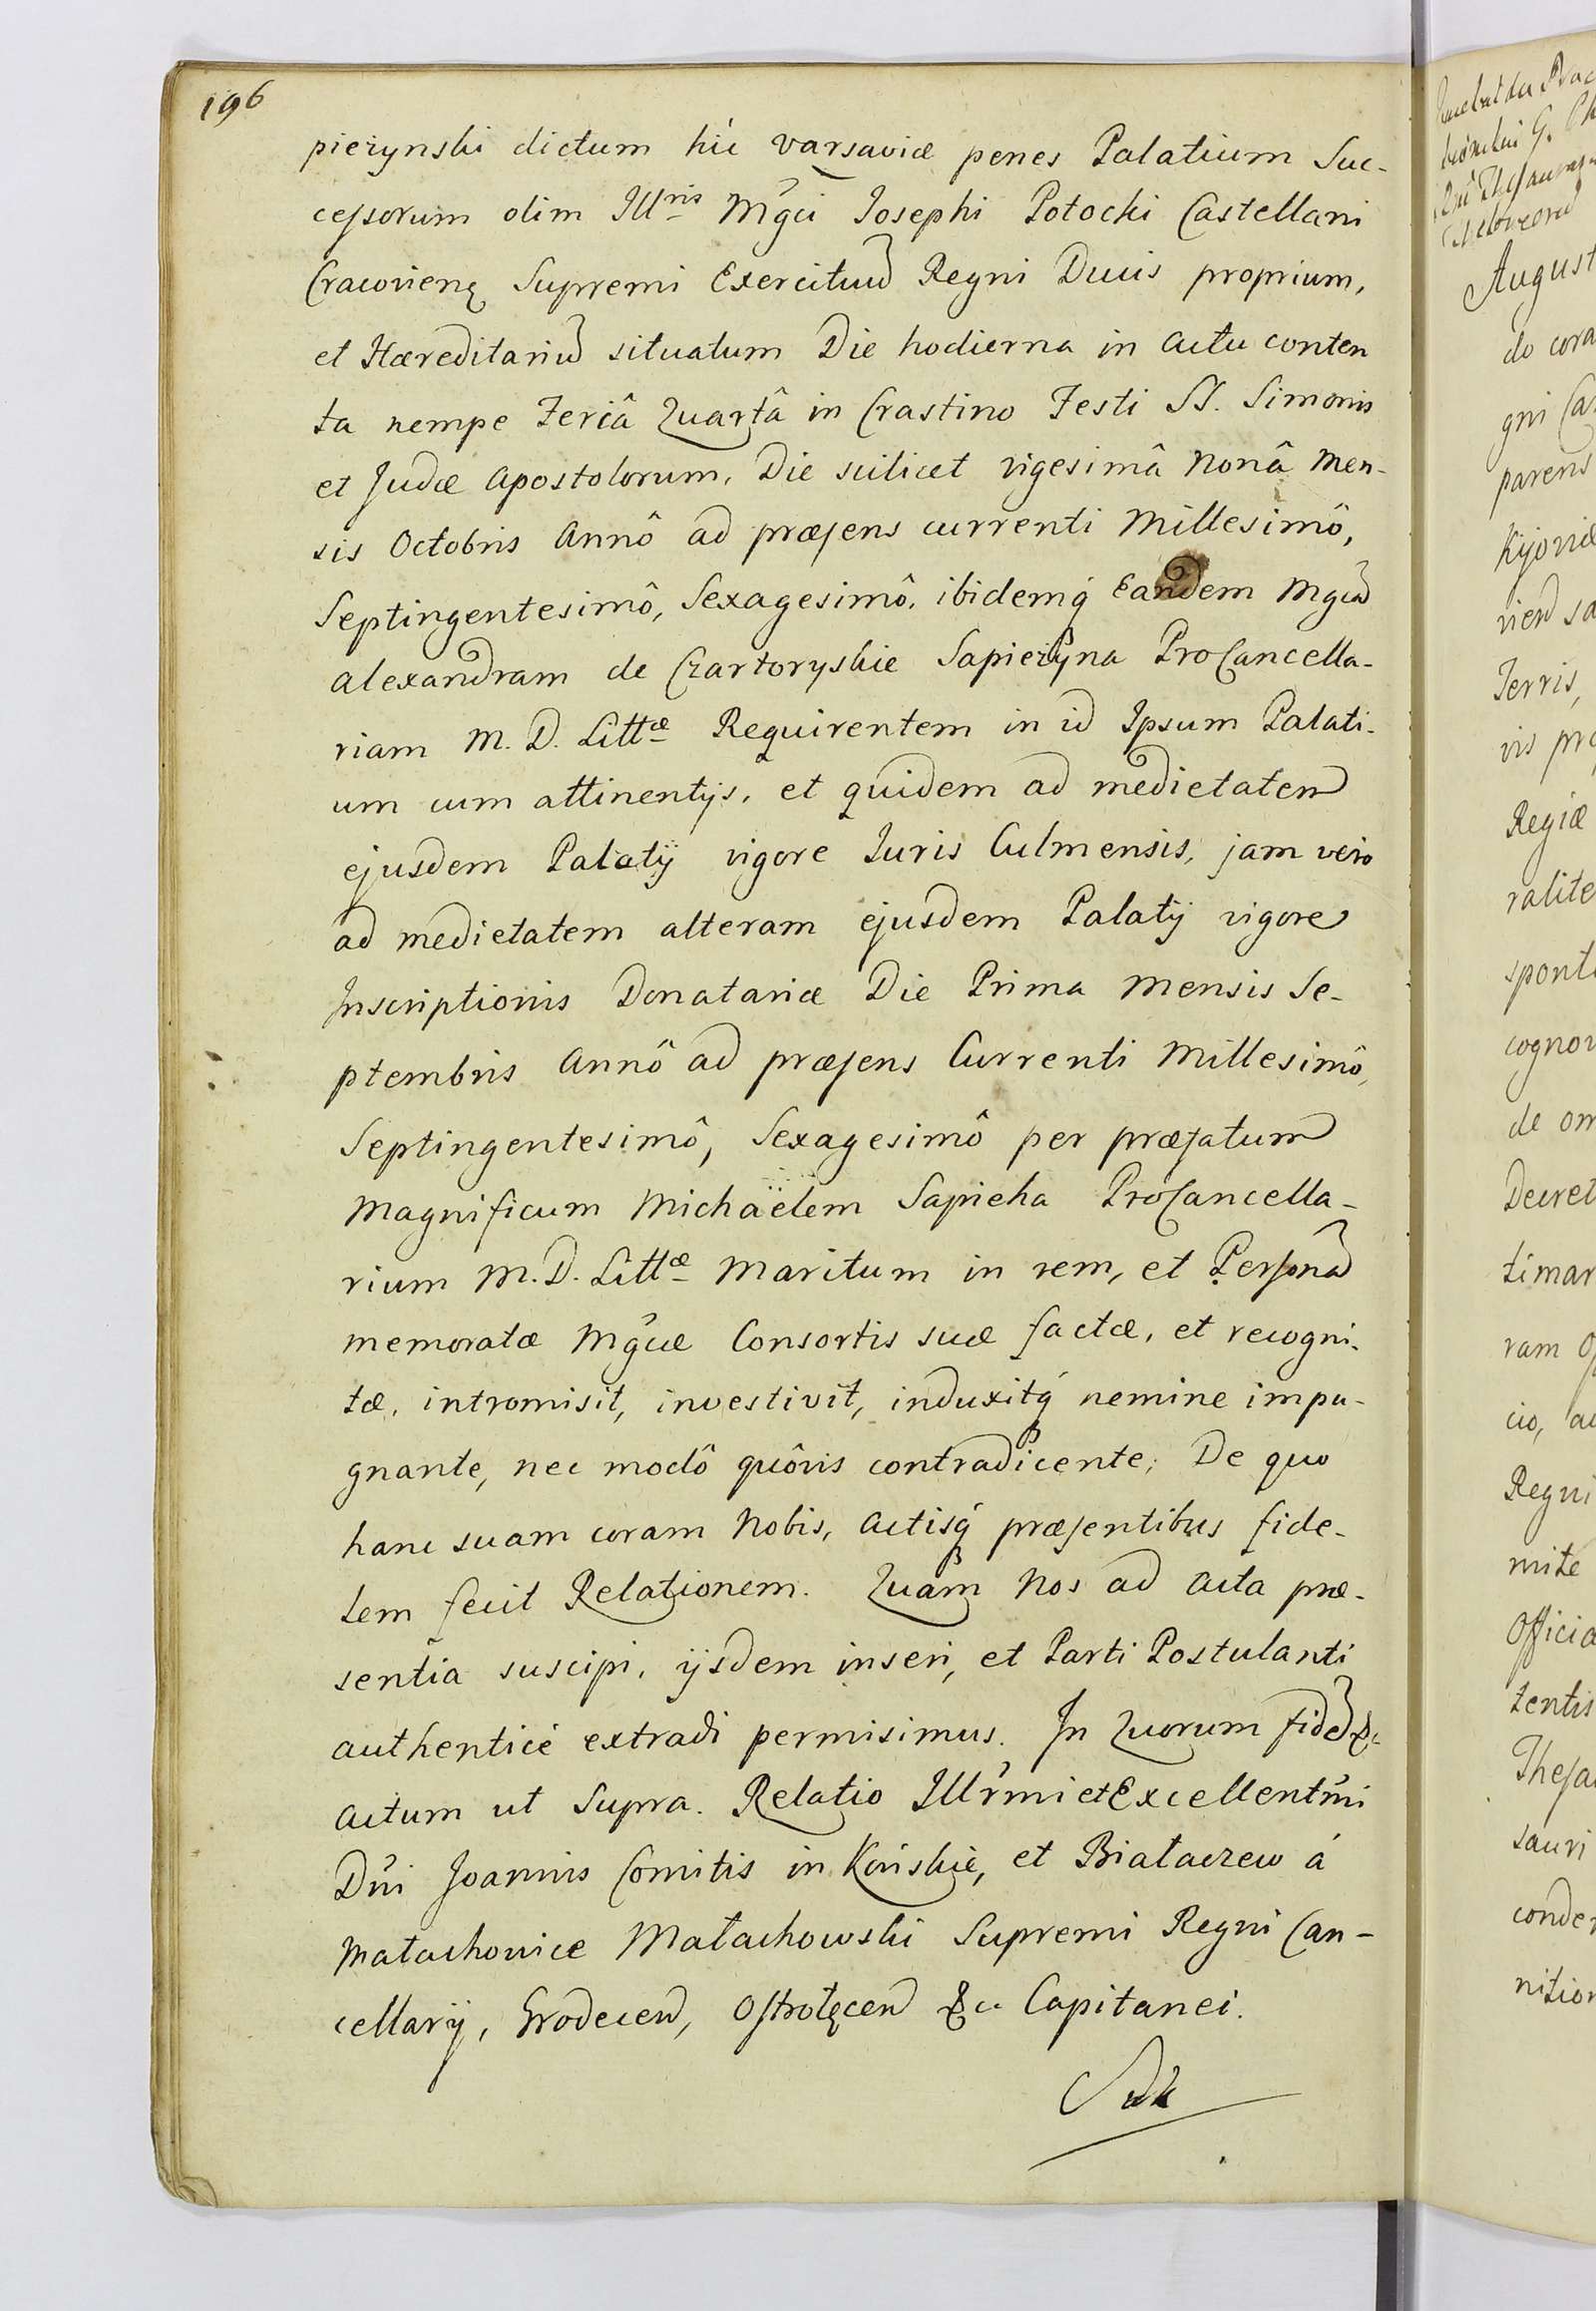 196
pieżynski dictum hic Varsaviæ penes Palatium Suc-
cessorum olim Illris Mgci Josephi Potocki Castellani
Cracovien Supremi Exercituu Regni Ducis proprium,
et Hæreditariu situatum Die hodierna in actu conten
ta nempe Feriâ Quartâ in Crastino Festi SS. Simonis
et Judæ Apostolorum, Die scilicet vigesimâ Nonâ Men-
sis Octobris Annô ad præsens currenti Millesimô,
Septingentesimô, Sexagesimô, ibidemq Eandem Mgca
Alexandram de Czartoryskie Sapieżyna ProCancella-
riam M. D. Littæ Requirentem in id Ipsum Palati-
um cum attinentijs, et quidem ad medietatem
ejusdem Palatÿ vigore Iuris Culmensis, jam vero
ad medietatem alteram ejusdem Palatij vigore
Inscriptionis Donatariæ Die Prima Mensis Se-
ptembris Annô ad præsens Currenti Millesimô,
Septingentesimô, Sexagesimô per præfatum
Magnificum Michaëlem Sapieha ProCancella-
rium M. D. Littæ Maritum in rem, et Persona
memoratæ Mgcæ Consortis suæ factæ, et recogni-
tæ, intromisit, investivit, induxitq nemine impu-
gnante, nec modô quôvis contradicente; De quo
hanc suam coram Nobis, Actisq præsentibus fide-
lem fecit Relationem. Quam Nos ad Acta præ-
sentia suscipi, ijsdem inseri, et Parti Postulanti
authenticè extradi permisimus. In Quorum fide &c
Actum ut Supra. Relatio Illrmi et Excellentmi
Dni Joannis Comitis in Końskie, et Białaczew à
Małachowice Małachowski Supremi Regni Can-
cellarij, Grodecen, Ostrołęcen &c Capitanei.
August
do cora
gni Ca
parens
Kijoviæ
Terris,
vis pro
Regiæ
ralite
spont
cognov
de om
Decret
timar
ram
cio, ac
Regni
mite
Officia
tentis
Thesa
sauri
conde
nition